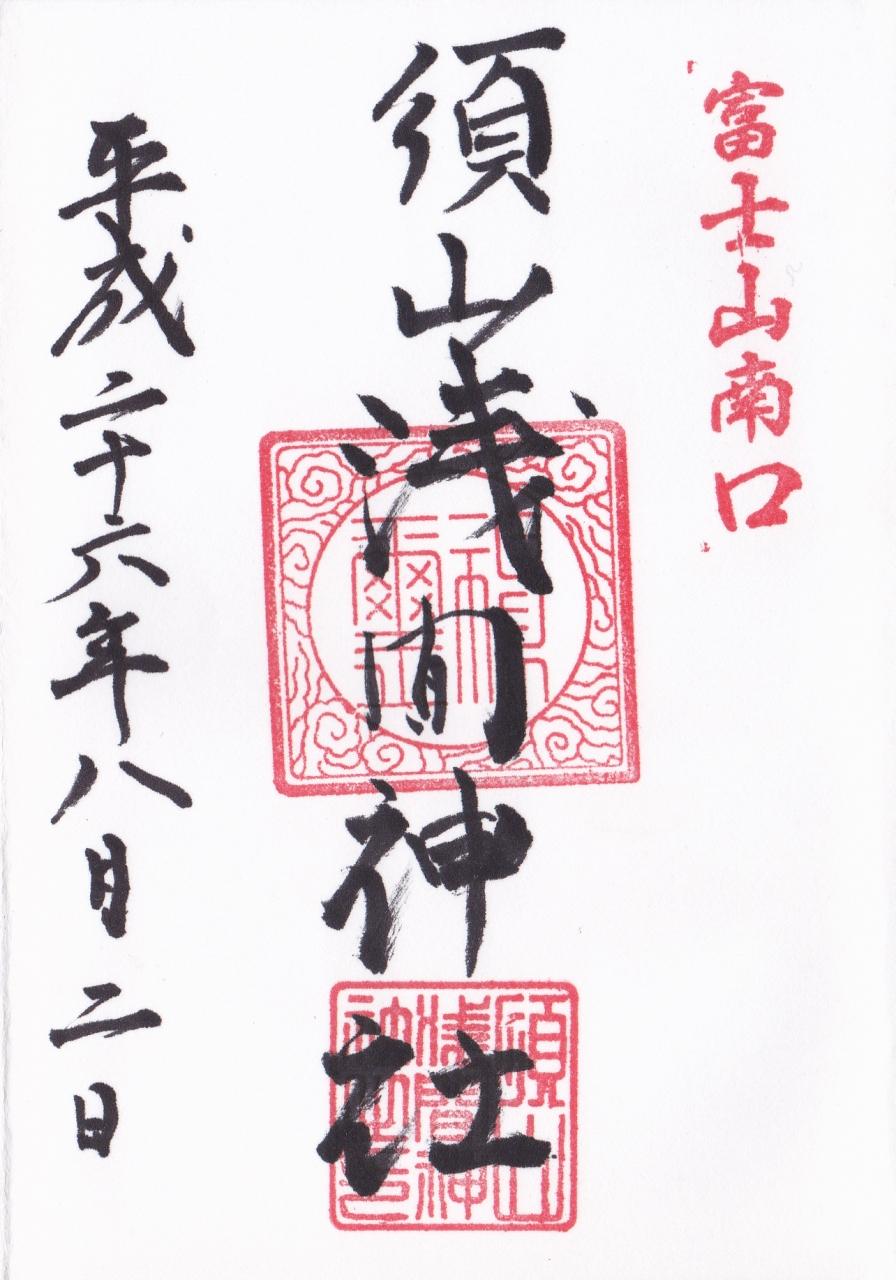 富士山南口
須山浅間神社
須山浅間神社印
平成二十六年八月二日